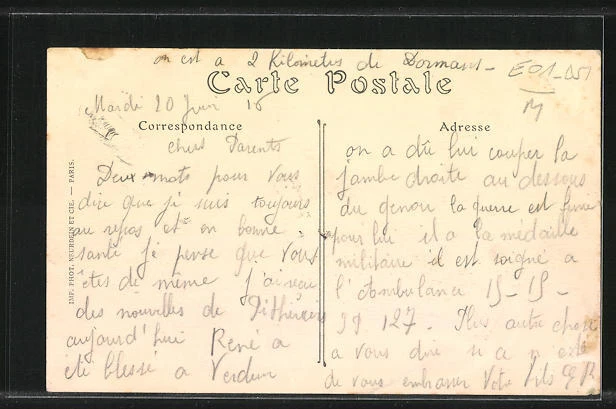 on est a 2 Kilometres de Dormans -
Carte Postale
Mardi 20 Juin 16
Correspondance
chers Parents
Deux mots pour vous
dire que je suis toujours
au repos et en bonne
santé je pense que vous
êtes de même j'ai reçu
des nouvelles de
aujourd'hui René a
été blessé a Verdun
Adresse
on a dû lui couper la
jambe droite au dessous
du genou la guerre est finie
pour lui il a la médaille
militaire il est soigné a
l'Ambulance 15 - 15 -
127 - Plus autre chose
a vous dire si a n est
de vous embrasser Votre fils
IMP. PHOT. NEURDEIN ET CIE. — PARIS.